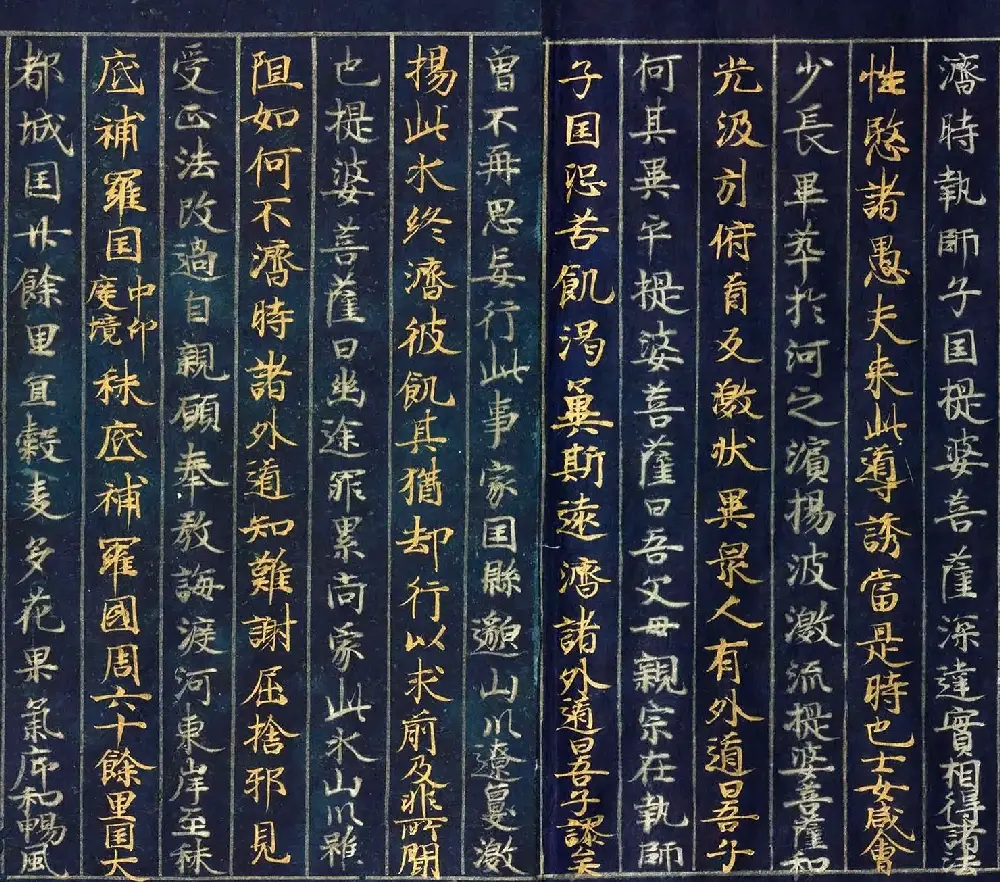 濟時執師子国提婆菩薩深達實相得諸法
性愍諸愚夫来此導誘當是時也士女咸會
少長畢萃於河之濱揚波激流提婆菩薩和
光汲引俯首反激狀異眾人有外道曰吾子
何其異乎提婆菩薩曰吾父母親宗在執師
子国恐苦飢渴冀斯遠濟諸外道曰吾子謬矣
曾不再思妄行此事家国緜邈山川遼敻激
揚此水終濟彼飢其猶却行以求前及非所聞
也提婆菩薩曰幽途罪累尚蒙此水山川雖
阻如何不濟時諸外道知難謝屈捨邪見
受正法改過自親願奉教誨渡河東岸至秣
底補羅国中印度境秣底補羅國周六十餘里国大
都城国廿餘里宜穀麦多花果氣序和暢風